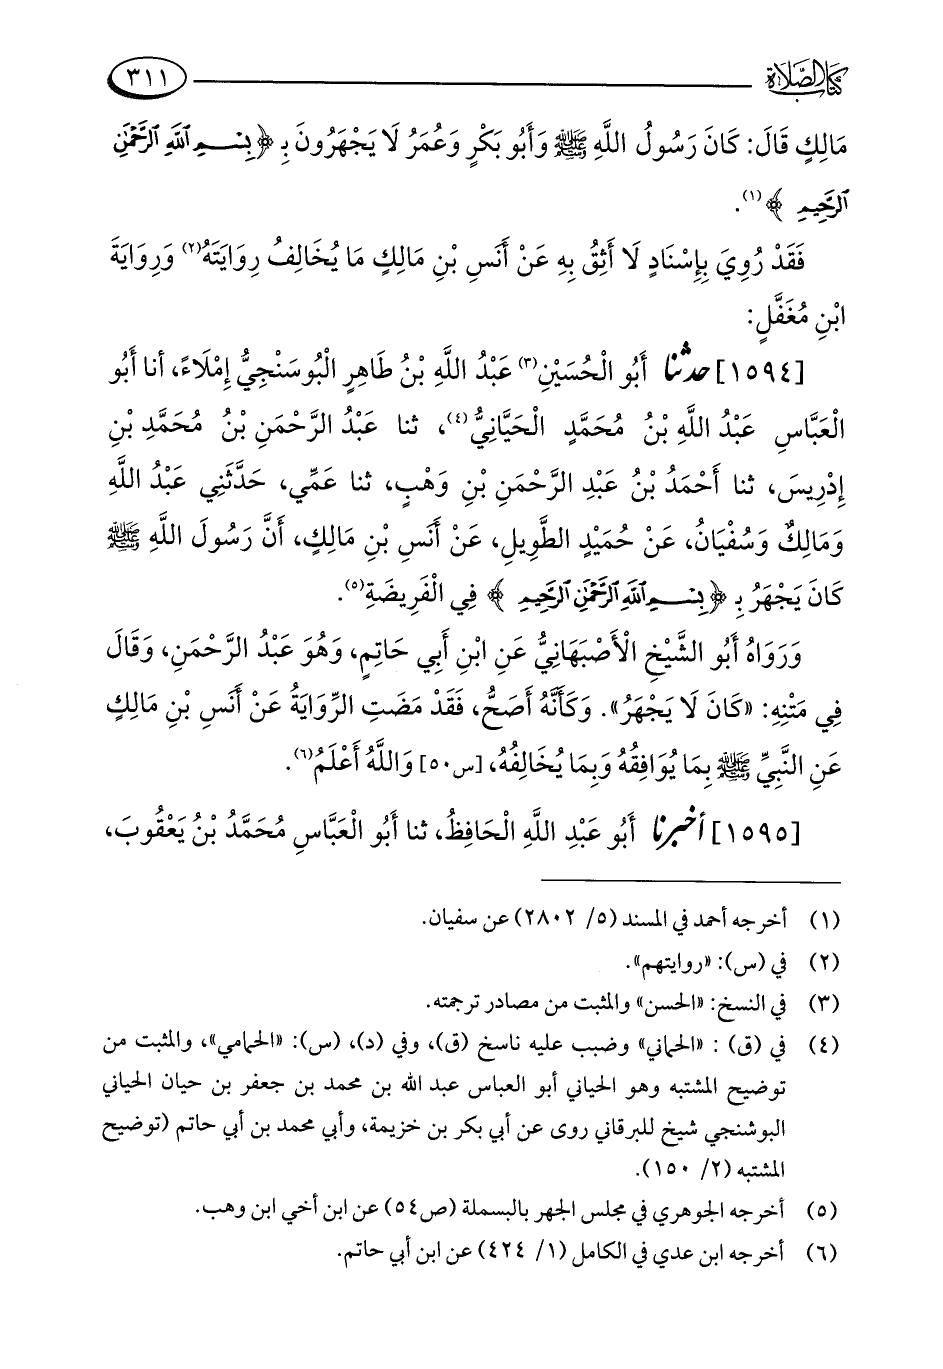 كتاب الصلاة
٣١١
مَالِكٍ قَالَ: كَانَ رَسُولُ اللَّهِ ﷺ وَأَبُو بَكْرٍ وَعُمَرُ لَا يَجْهَرُونَ بِـ ﴿بِسْمِ ٱللَّهِ ٱلرَّحْمَٰنِ
ٱلرَّحِيمِ﴾(١).
فَقَدْ رُوِيَ بِإِسْنَادٍ لَا أَثِقُ بِهِ عَنْ أَنَسِ بْنِ مَالِكٍ مَا يُخَالِفُ رِوَايَتَهُ(٢) وَرِوَايَةَ
ابْنِ مُغَفَّلٍ:
[١٥٩٤] حدثنا أَبُو الْحُسَيْنِ(٣) عَبْدُ اللَّهِ بْنُ طَاهِرٍ الْبُوسَنْجِيُّ إِمْلَاءً، أنا أَبُو
الْعَبَّاسِ عَبْدُ اللَّهِ بْنُ مُحَمَّدٍ الْحَيَّانِيُّ(٤)، ثنا عَبْدُ الرَّحْمَنِ بْنُ مُحَمَّدِ بْنِ
إِدْرِيسَ، ثنا أَحْمَدُ بْنُ عَبْدِ الرَّحْمَنِ بْنِ وَهْبٍ، ثنا عَمِّي، حَدَّثَنِي عَبْدُ اللَّهِ
وَمَالِكٌ وَسُفْيَانُ، عَنْ حُمَيْدٍ الطَّوِيلِ، عَنْ أَنَسِ بْنِ مَالِكٍ، أَنَّ رَسُولَ اللَّهِ ﷺ
كَانَ يَجْهَرُ بِـ ﴿بِسْمِ ٱللَّهِ ٱلرَّحْمَٰنِ ٱلرَّحِيمِ﴾ فِي الْفَرِيضَةِ(٥).
وَرَوَاهُ أَبُو الشَّيْخِ الْأَصْبَهَانِيُّ عَنِ ابْنِ أَبِي حَاتِمٍ، وَهُوَ عَبْدُ الرَّحْمَنِ، وَقَالَ
فِي مَتْنِهِ: «كَانَ لَا يَجْهَرُ». وَكَأَنَّهُ أَصَحُّ، فَقَدْ مَضَتِ الرِّوَايَةُ عَنْ أَنَسِ بْنِ مَالِكٍ
عَنِ النَّبِيِّ ﷺ بِمَا يُوَافِقُهُ وَبِمَا يُخَالِفُهُ، [س٥٠] وَاللَّهُ أَعْلَمُ(٦).
[١٥٩٥] أخبرنا أَبُو عَبْدِ اللَّهِ الْحَافِظُ، ثنا أَبُو الْعَبَّاسِ مُحَمَّدُ بْنُ يَعْقُوبَ،
(١) أخرجه أحمد في المسند (٥/ ٢٨٠٢) عن سفيان.
(٢) في (س): «روايتهم».
(٣) في النسخ: «الحسن» والمثبت من مصادر ترجمته.
(٤) في (ق) : «الحماني» وضبب عليه ناسخ (ق)، وفي (د)، (س): «الحمامي»، والمثبت من
توضيح المشتبه وهو الحياني أبو العباس عبد الله بن محمد بن جعفر بن حيان الحياني
البوشنجي شيخ للبرقاني روى عن أبي بكر بن خزيمة، وأبي محمد بن أبي حاتم (توضيح
المشتبه (٢/ ١٥٠).
(٥) أخرجه الجوهري في مجلس الجهر بالبسملة (ص٥٤) عن ابن أخي ابن وهب.
(٦) أخرجه ابن عدي في الكامل (١/ ٤٢٤) عن ابن أبي حاتم.